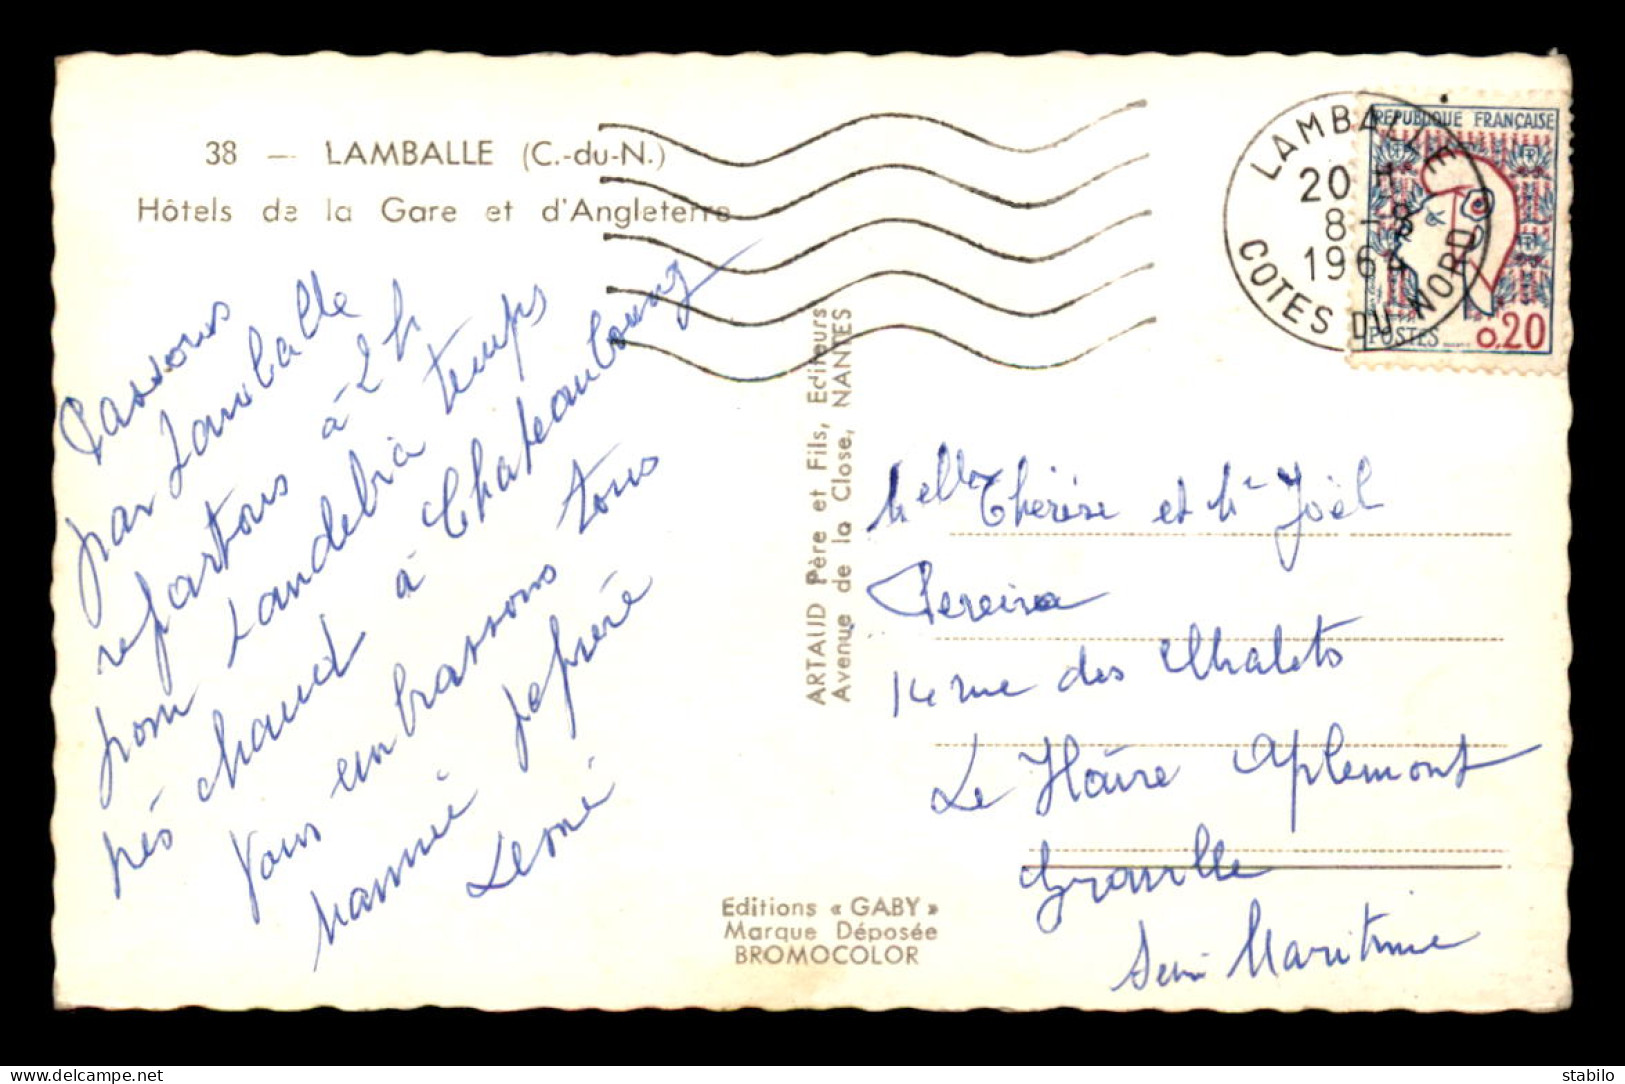 38 — LAMBALLE (C.-du-N.)
Hôtels de la Gare et d'Angleterre
LAMBALLE
20 H
8-8
1964
COTES DU NORD
REPUBLIQUE FRANÇAISE
POSTES 0,20
Passons
par Lamballe
repartons à 2h
pour Landebia temps
très chaud à Chateaubourg
Vous embrassons tous
mammie pépère
Léoné
ARTAUD Père et Fils, Editeurs
Avenue de la Close, NANTES
Melle Thérèse et Mr Joël
Pereira
14 rue des Chalets
Le Hâvre Aplemont
Graville
Seine Maritime
Editions « GABY »
Marque Déposée
BROMOCOLOR
delcampe.net
stabilo